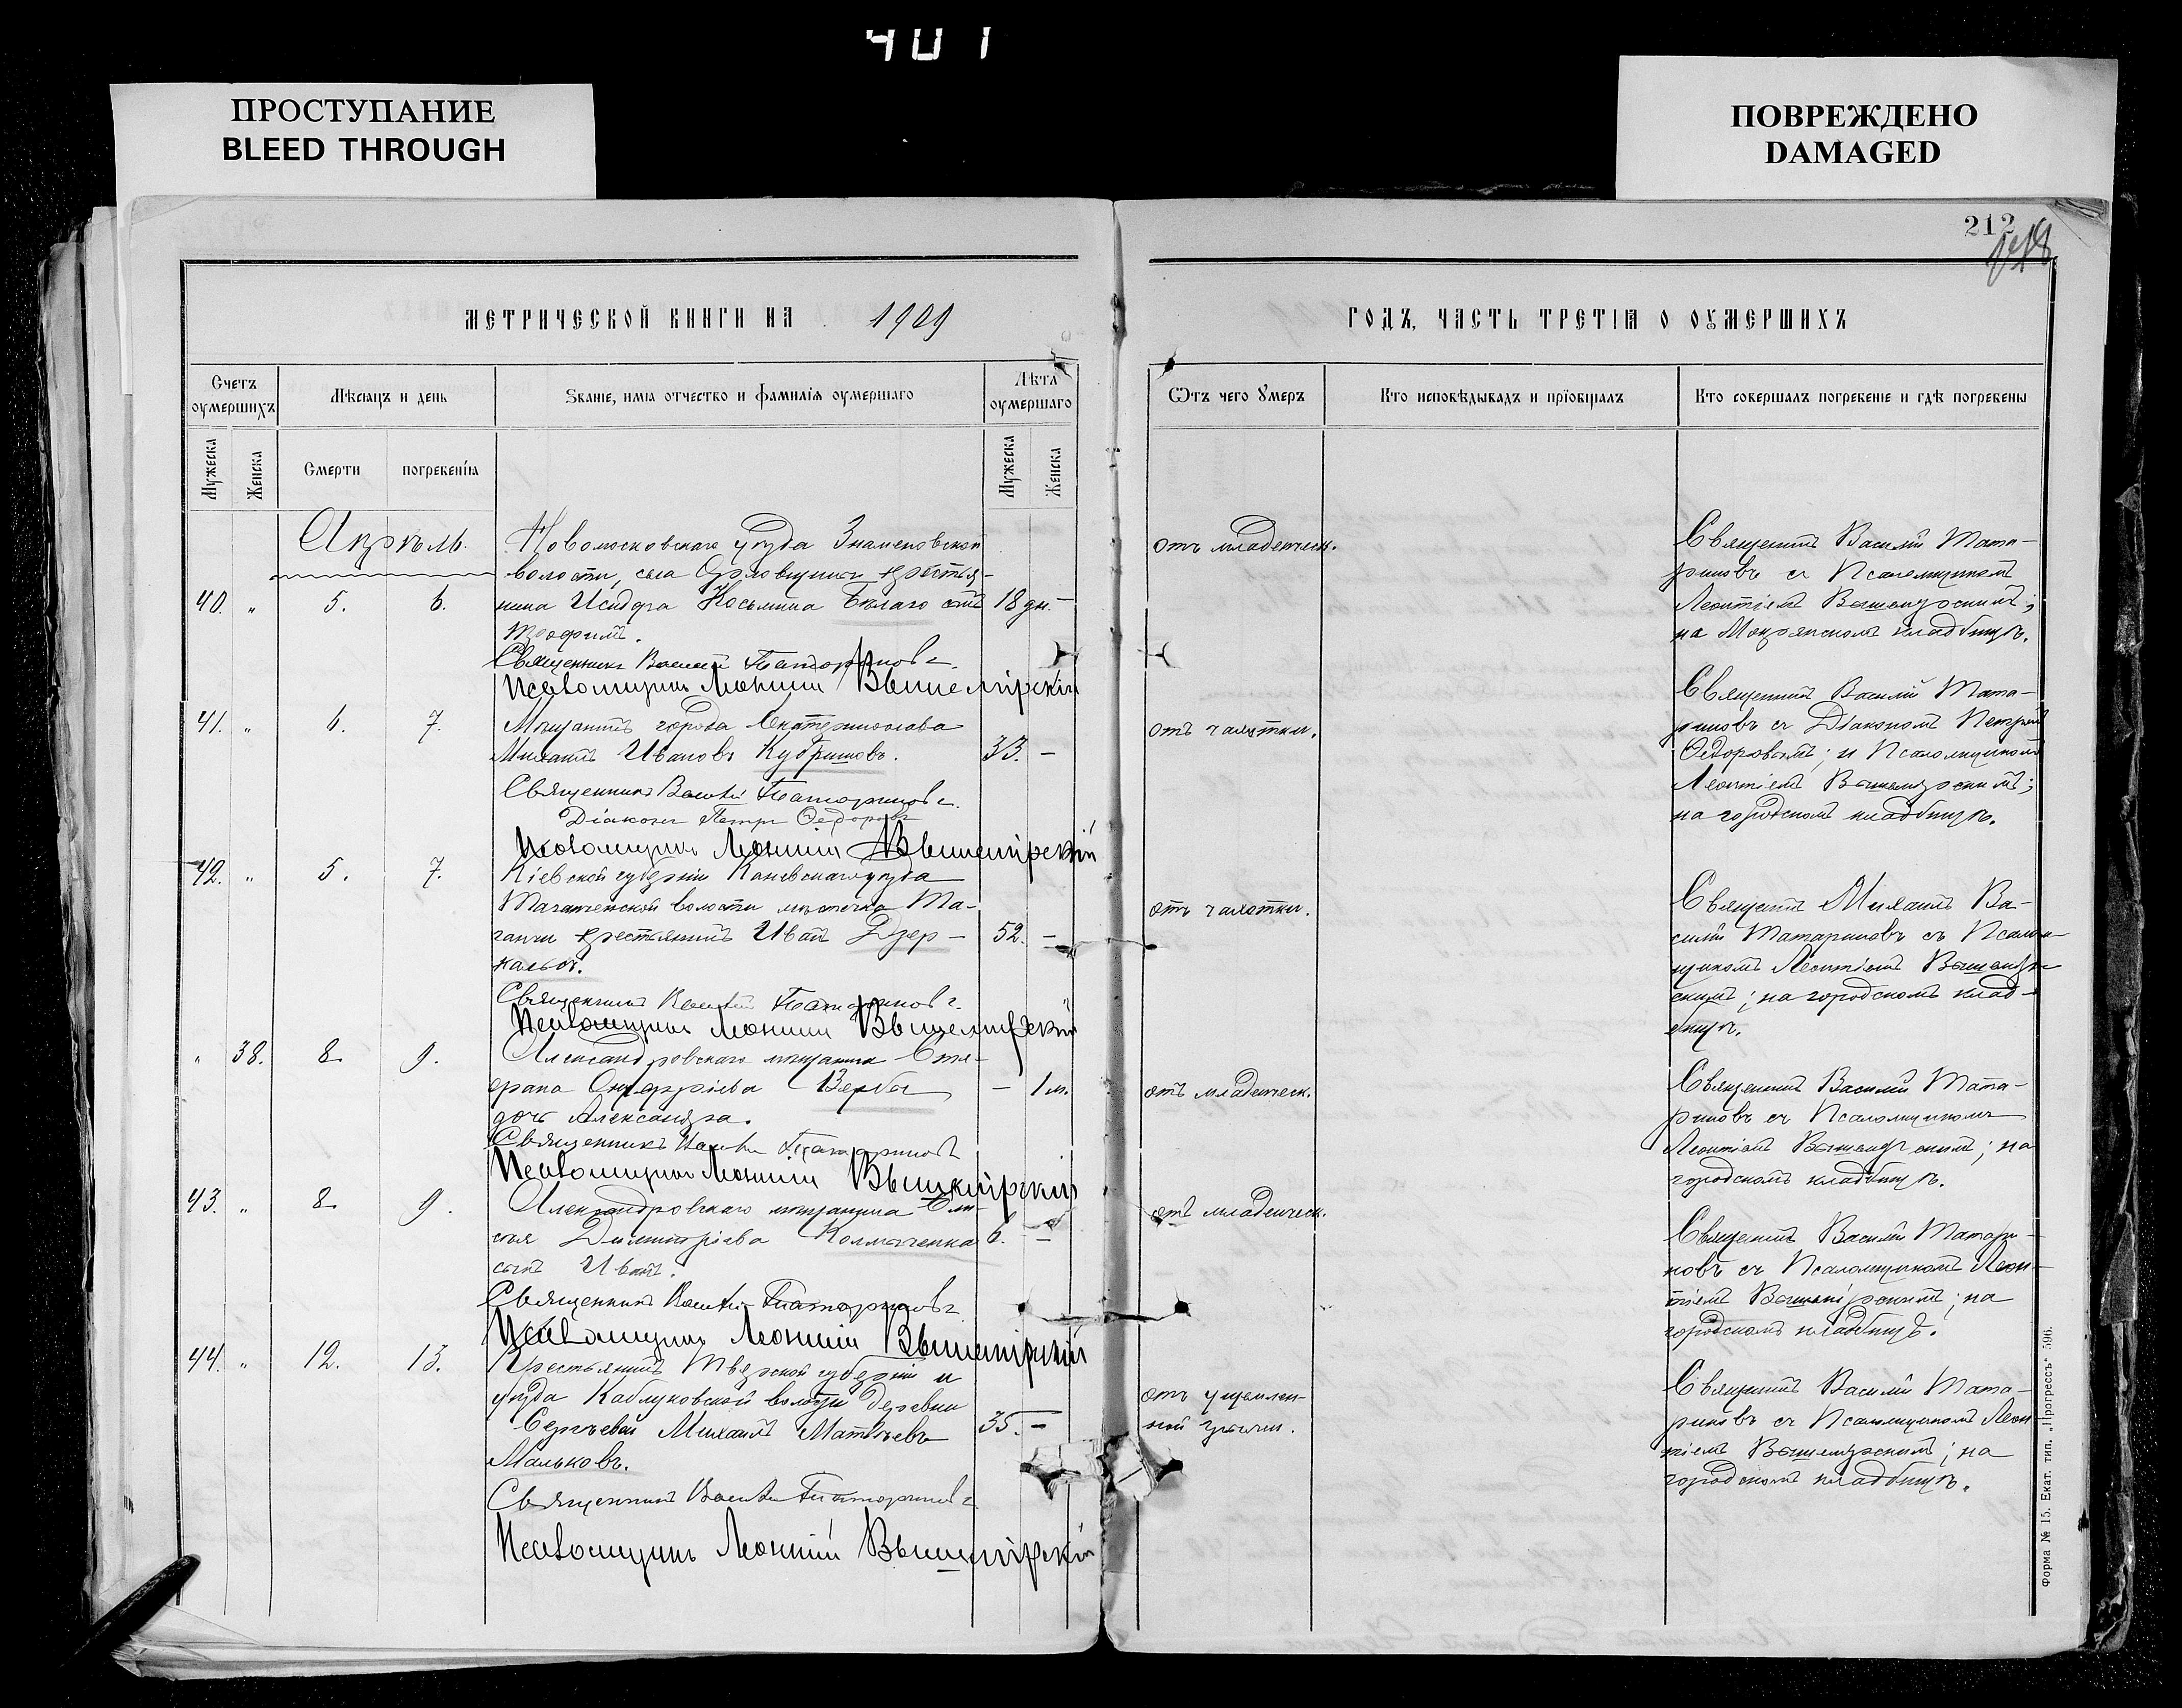 401
ПРОСТУПАНИЕ
BLEED THROUGH
ПОВРЕЖДЕНО
DAMAGED
212
МЕТРИЧЕСКОЙ КНИГИ НА 1909
ГОДЪ, ЧАСТЬ ТРЕТІЯ О ОУМЕРШИХЪ
Счетъ оумершихъ
Мѣсяцъ и день
Званіе, имя отчество и фамилія оумершаго
Лѣта оумершаго
Мужеска
Женска
Смерти
погребенія
Мужеска
Женска
Отъ чего Умеръ
Кто исповѣдывалъ и пріобщалъ
Кто совершалъ погребеніе и гдѣ погребены
Апрѣль.
Новомосковскаго уѣзда Знаменовской
волости, села Орловщины крестья-
40. " 5. 6. нина Исидора Косьмина Бѣлаго сынъ 18 дн. —
Трофимъ.
Священникъ Василій Татариновъ.
Псаломщикъ Леонтій Вышемірскій
отъ младенческ.
Священникъ Василій Тата-
риновъ съ Псаломщикомъ
Леонтіемъ Вышемірскимъ;
на кладбищѣ.
41. " 6. 7. Мѣщанинъ города Екатеринослава
Михаилъ Ивановъ Кудряшовъ. 33. —
Священникъ Василій Татариновъ.
Діаконъ Петръ Ѳедоровъ
Псаломщикъ Леонтій Вышемірскій
отъ чахотки.
Священникъ Василій Тата-
риновъ съ Діакономъ Петромъ
Ѳедоровымъ; и Псаломщикомъ
Леонтіемъ Вышемірскимъ;
на городскомъ кладбищѣ.
42. " 5. 7. Кіевской губерніи Каневскаго уѣзда
Таганченской волости мѣстечка Та-
ганчи крестьянинъ Иванъ Дзер- 52. —
кальъ.
Священникъ Василій Татариновъ.
Псаломщикъ Леонтій Вышемірскій
отъ чахотки.
Священникъ Михаилъ Ва-
силій Татариновъ съ Псалом-
щикомъ Леонтіемъ Вышемір-
скимъ; на городскомъ клад-
бищѣ.
" 38. 8. 9. Александровскаго мѣщанина Сте-
фана Онуфріева Вербы — 1 м.
дочь Александра.
Священникъ Василій Татариновъ
Псаломщикъ Леонтій Вышемірскій
отъ младенческ.
Священникъ Василій Тата-
риновъ съ Псаломщикомъ
Леонтіемъ Вышемірскимъ; на
городскомъ кладбищѣ.
43. " 8. 9. Александровскаго мѣщанина Ели-
сея Димитріева Колмаченка 6. —
сынъ Иванъ.
Священникъ Василій Татариновъ
Псаломщикъ Леонтій Вышемірскій
отъ младенческ.
Священникъ Василій Татари-
новъ съ Псаломщикомъ Леон-
тіемъ Вышемірскимъ; на
городскомъ кладбищѣ.
44. " 12. 13. Крестьянинъ Тверской губерніи и
уѣзда Каблуковской волости деревни
Сергѣевой Михаилъ Матвѣевъ 35. —
Мальковъ.
Священникъ Василій Татариновъ
Псаломщикъ Леонтій Вышемірскій
отъ ущемлен-
ной грыжи.
Священникъ Василій Тата-
риновъ съ Псаломщикомъ Леон
тіемъ Вышемірскимъ; на
городскомъ кладбищѣ.
Форма № 15. Екат. тип. „Прогрессъ" 596.